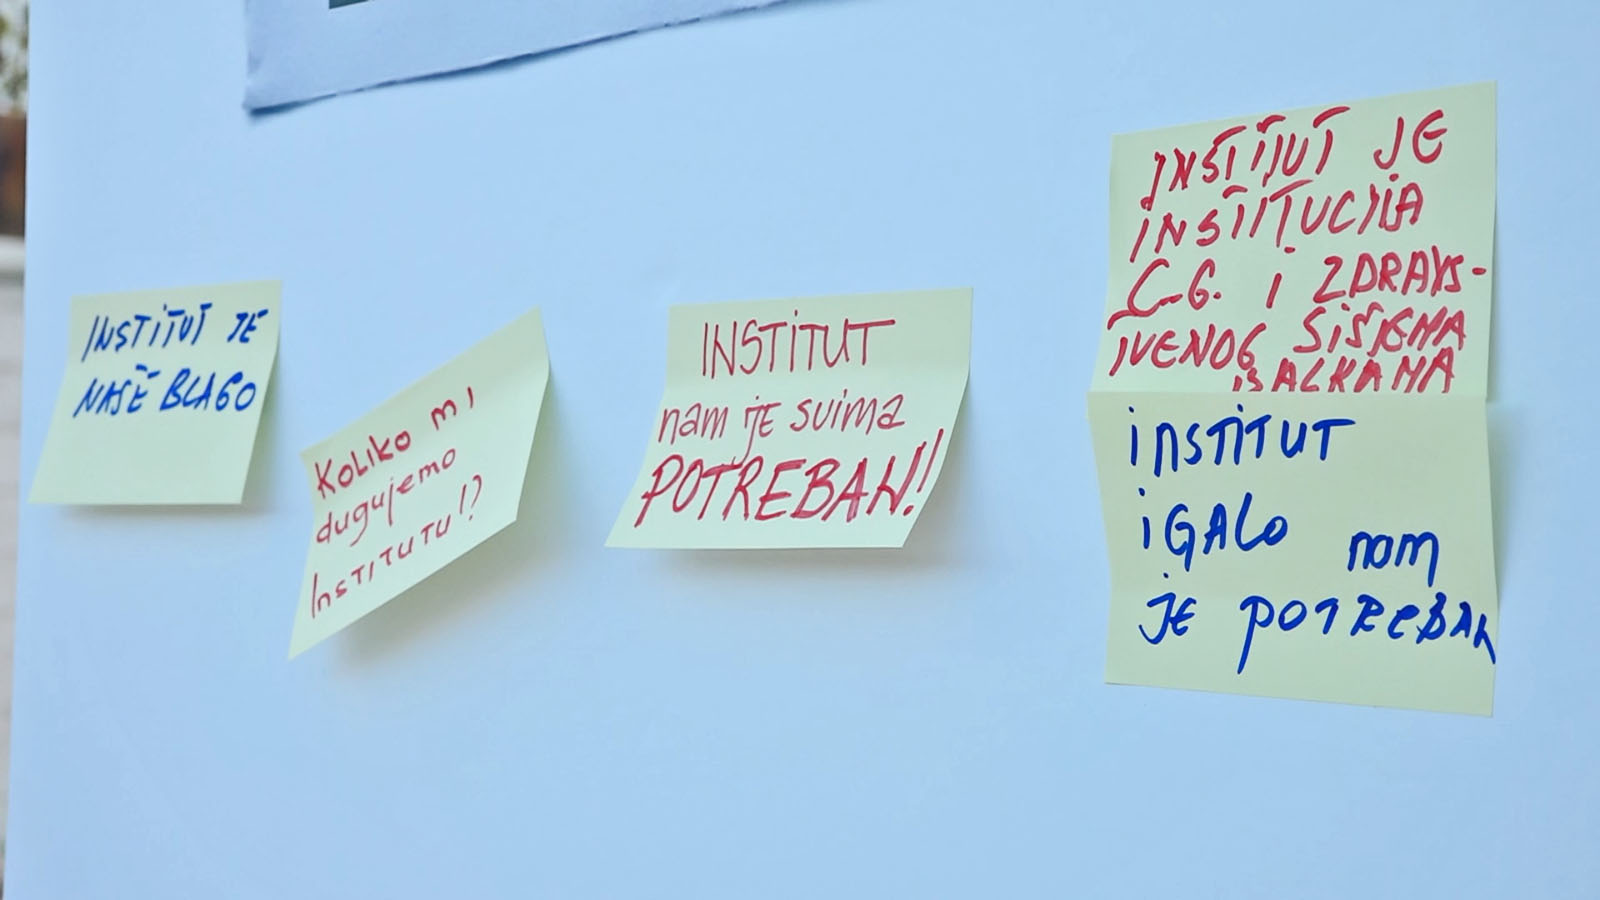 INSTITUT JE
NAŠE BLAGO
KOLIKO MI
dugujemo
INSTITUTU!?
INSTITUT
nam je svima
POTREBAN!
INSTITUT JE
INSTITUCIJA
C.G. I ZDRAVS-
TVENOG SISTEMA
BALKANA
INSTITUT
IGALO nam
JE POTREBAN